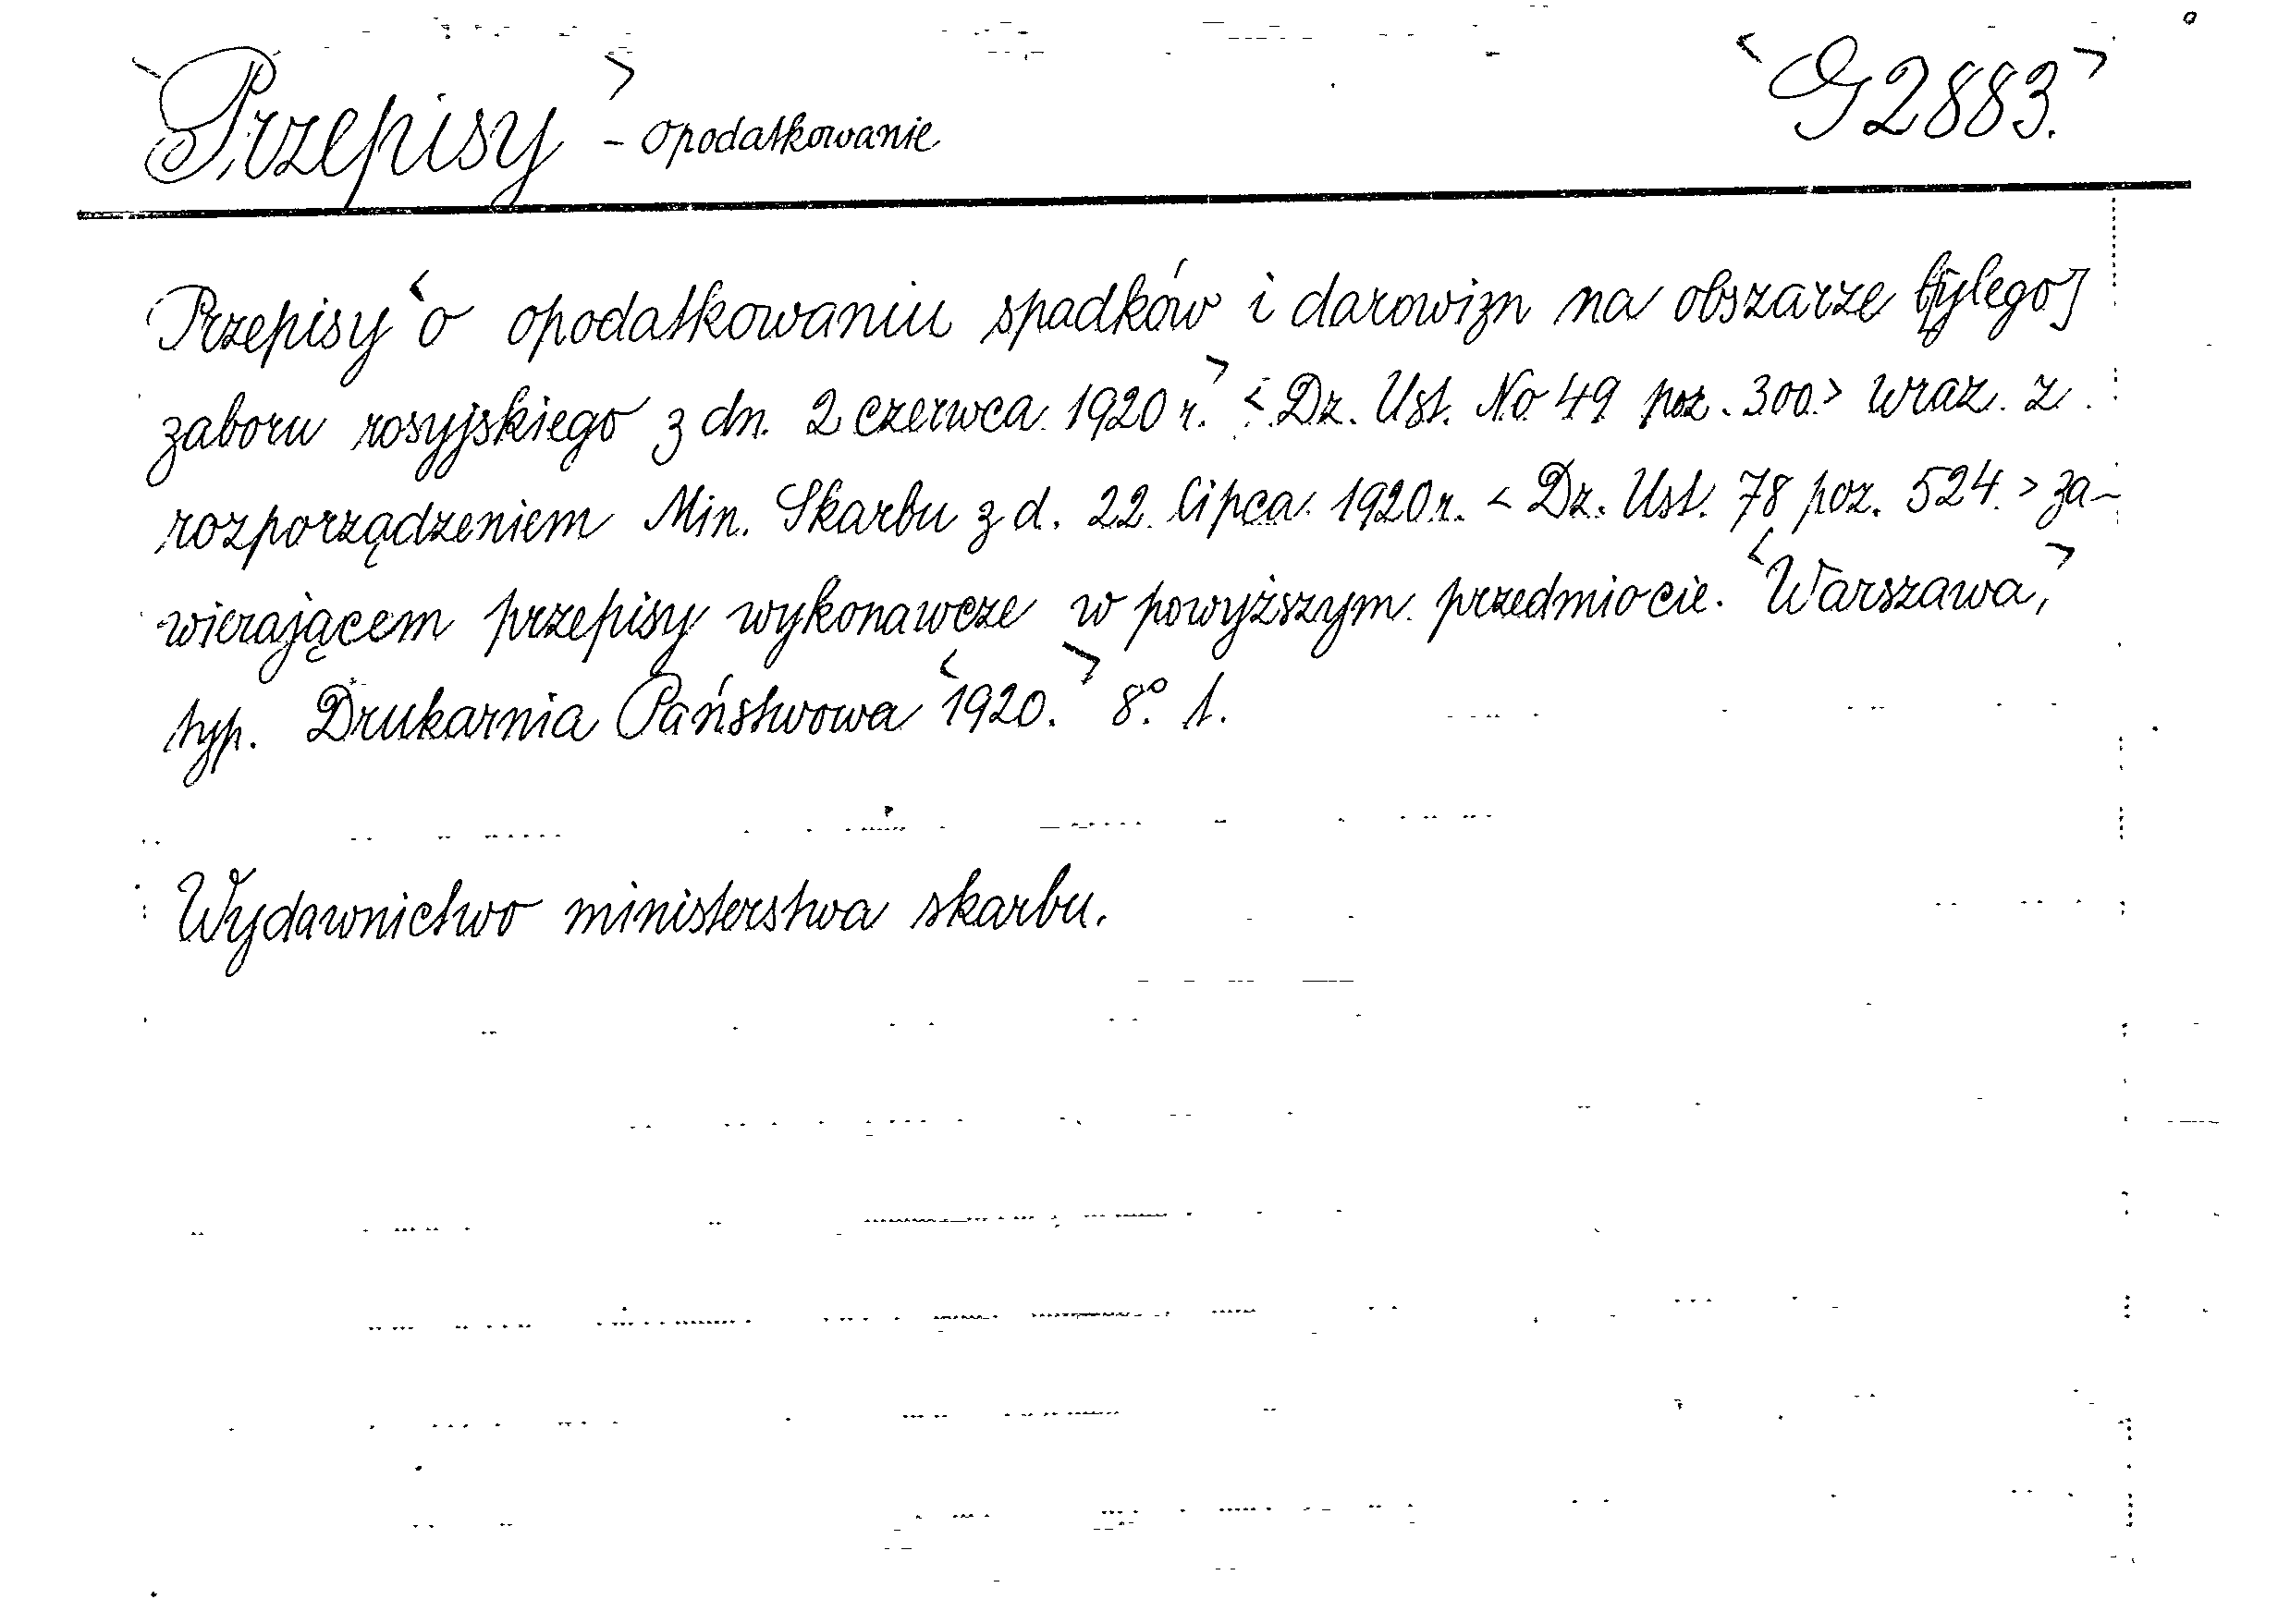 <Przepisy> - opodatkowanie <G2883.>
Przepisy <o opodatkowaniu spadków i darowizn na obszarze b[ylego]
zaboru rosyjskiego z dn. 2 czerwca 1920 r.> <Dz. Ust. No 49 poz. 300.> wraz. z
rozporządzeniem Min. Skarbu z d. 22. lipca 1920.r. <Dz. Ust. 78 poz. 524.> za-
wierającem przepisy wykonawcze w powyższym przedmiocie. <Warszawa,>
typ. Drukarnia Państwowa <1920.> 8°. 1.
Wydawnictwo ministerstwa skarbu.